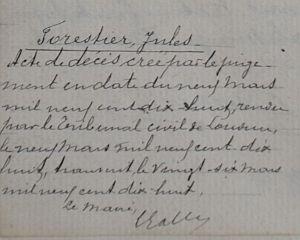 Forestier, Jules
Acte de décès créé par le juge-
ment en date du neuf Mars
mil neuf cent dix huit, rendu
par le Tribunal civil de
le neuf Mars mil neuf cent dix
huit, transcrit le Vingt-six Mars
mil neuf cent dix-huit.
Le Maire,